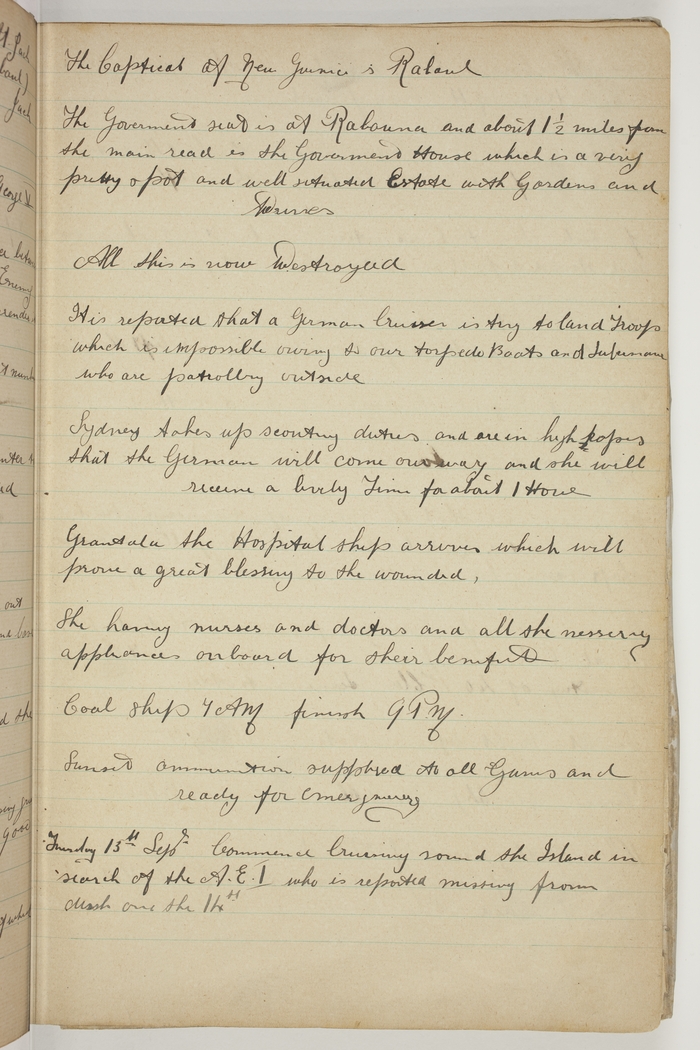 The Captical of New Guinic is Rabaul
The Goverment seat is at Rabauna and about 1½ miles from
the main road is the Goverment House which is a very
pretty spot and well situated Estate with Gardens and
Drives
All this is now Destroyed
It is reported that a German Cruiser is try to land Troops
which is impossible owing to our torpedo Boats and
who are patrolling outside
Sydney takes up scouting duties and are in high hopes
that the German will come our way and she will
receive a lively Time for about 1 Hour
Grantala the Hospital ship arrives which will
prove a great blessing to the wounded,
She having nurses and doctors and all the nesserey
appliances onboard for their benifit
Coal ship 7 AM finish 9 PM.
Sunset ammunition supplied to all Guns and
ready for emergency
Tuesday 15th Sept Commence Cruising round the Island in
search of the A.E.1 who is reported missing from
dusk one the 14th